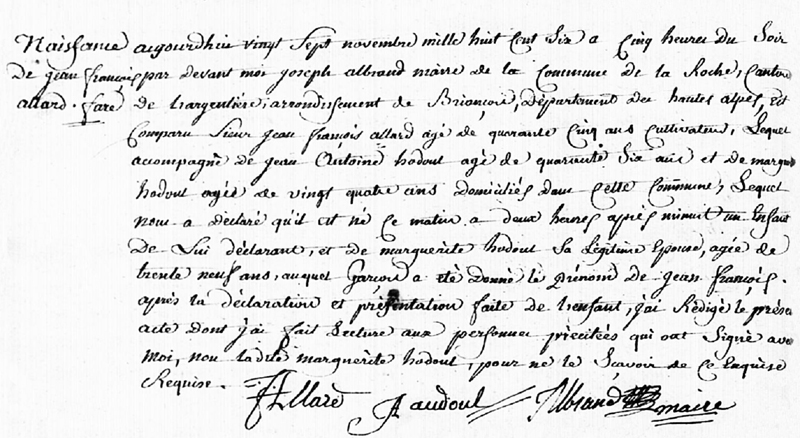 Naissance aujourdhui vingt Sept novembre mille huit Cent Six a Cinq heures du Soir
De jean françois par devant moi joseph albrand maire de la Commune de la Roche, Canton
allard. faré de Largentière, arrondissement de Briançon, Département des hautes alpes, Est
Comparu Sieur jean françois allard agé de quarante Cinq ans Cultivateur, Lequel
accompagné de jean Antoine hodoul agé de quarante Six ans et de margue
hodoul agée de vingt quatre ans domiciliés dans Cette Commune, Lequel
nous a déclaré qu'il est né Ce matin a deux heures après minuit un Enfant
De Lui déclarant, et de marguerite hodoul Sa Légitime Epouse, agée de
trente neuf ans, auquel Garçon a été donné le Prénom de jean françois.
après la déclaration et présentation faite de l'enfant, j'ai Rédigé le prése
acte dont j'ai fait Lecture aux personnes précitées qui ont Signé ave
moi, non ladite marguerite hodoul, pour ne le Scavoir de Ce Enquise
Requise.
Allard Audoul Albrand maire